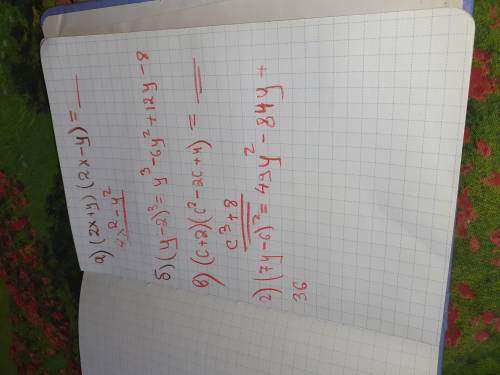 а) (2x+y) (2x-y) = __
4x² - y²
б) (y-2)³ = y³ - 6y² + 12y - 8
в) (c+2)(c² - 2c + 4) = __
c³ + 8
г) (7y-6)² = 49y² - 84y +
36